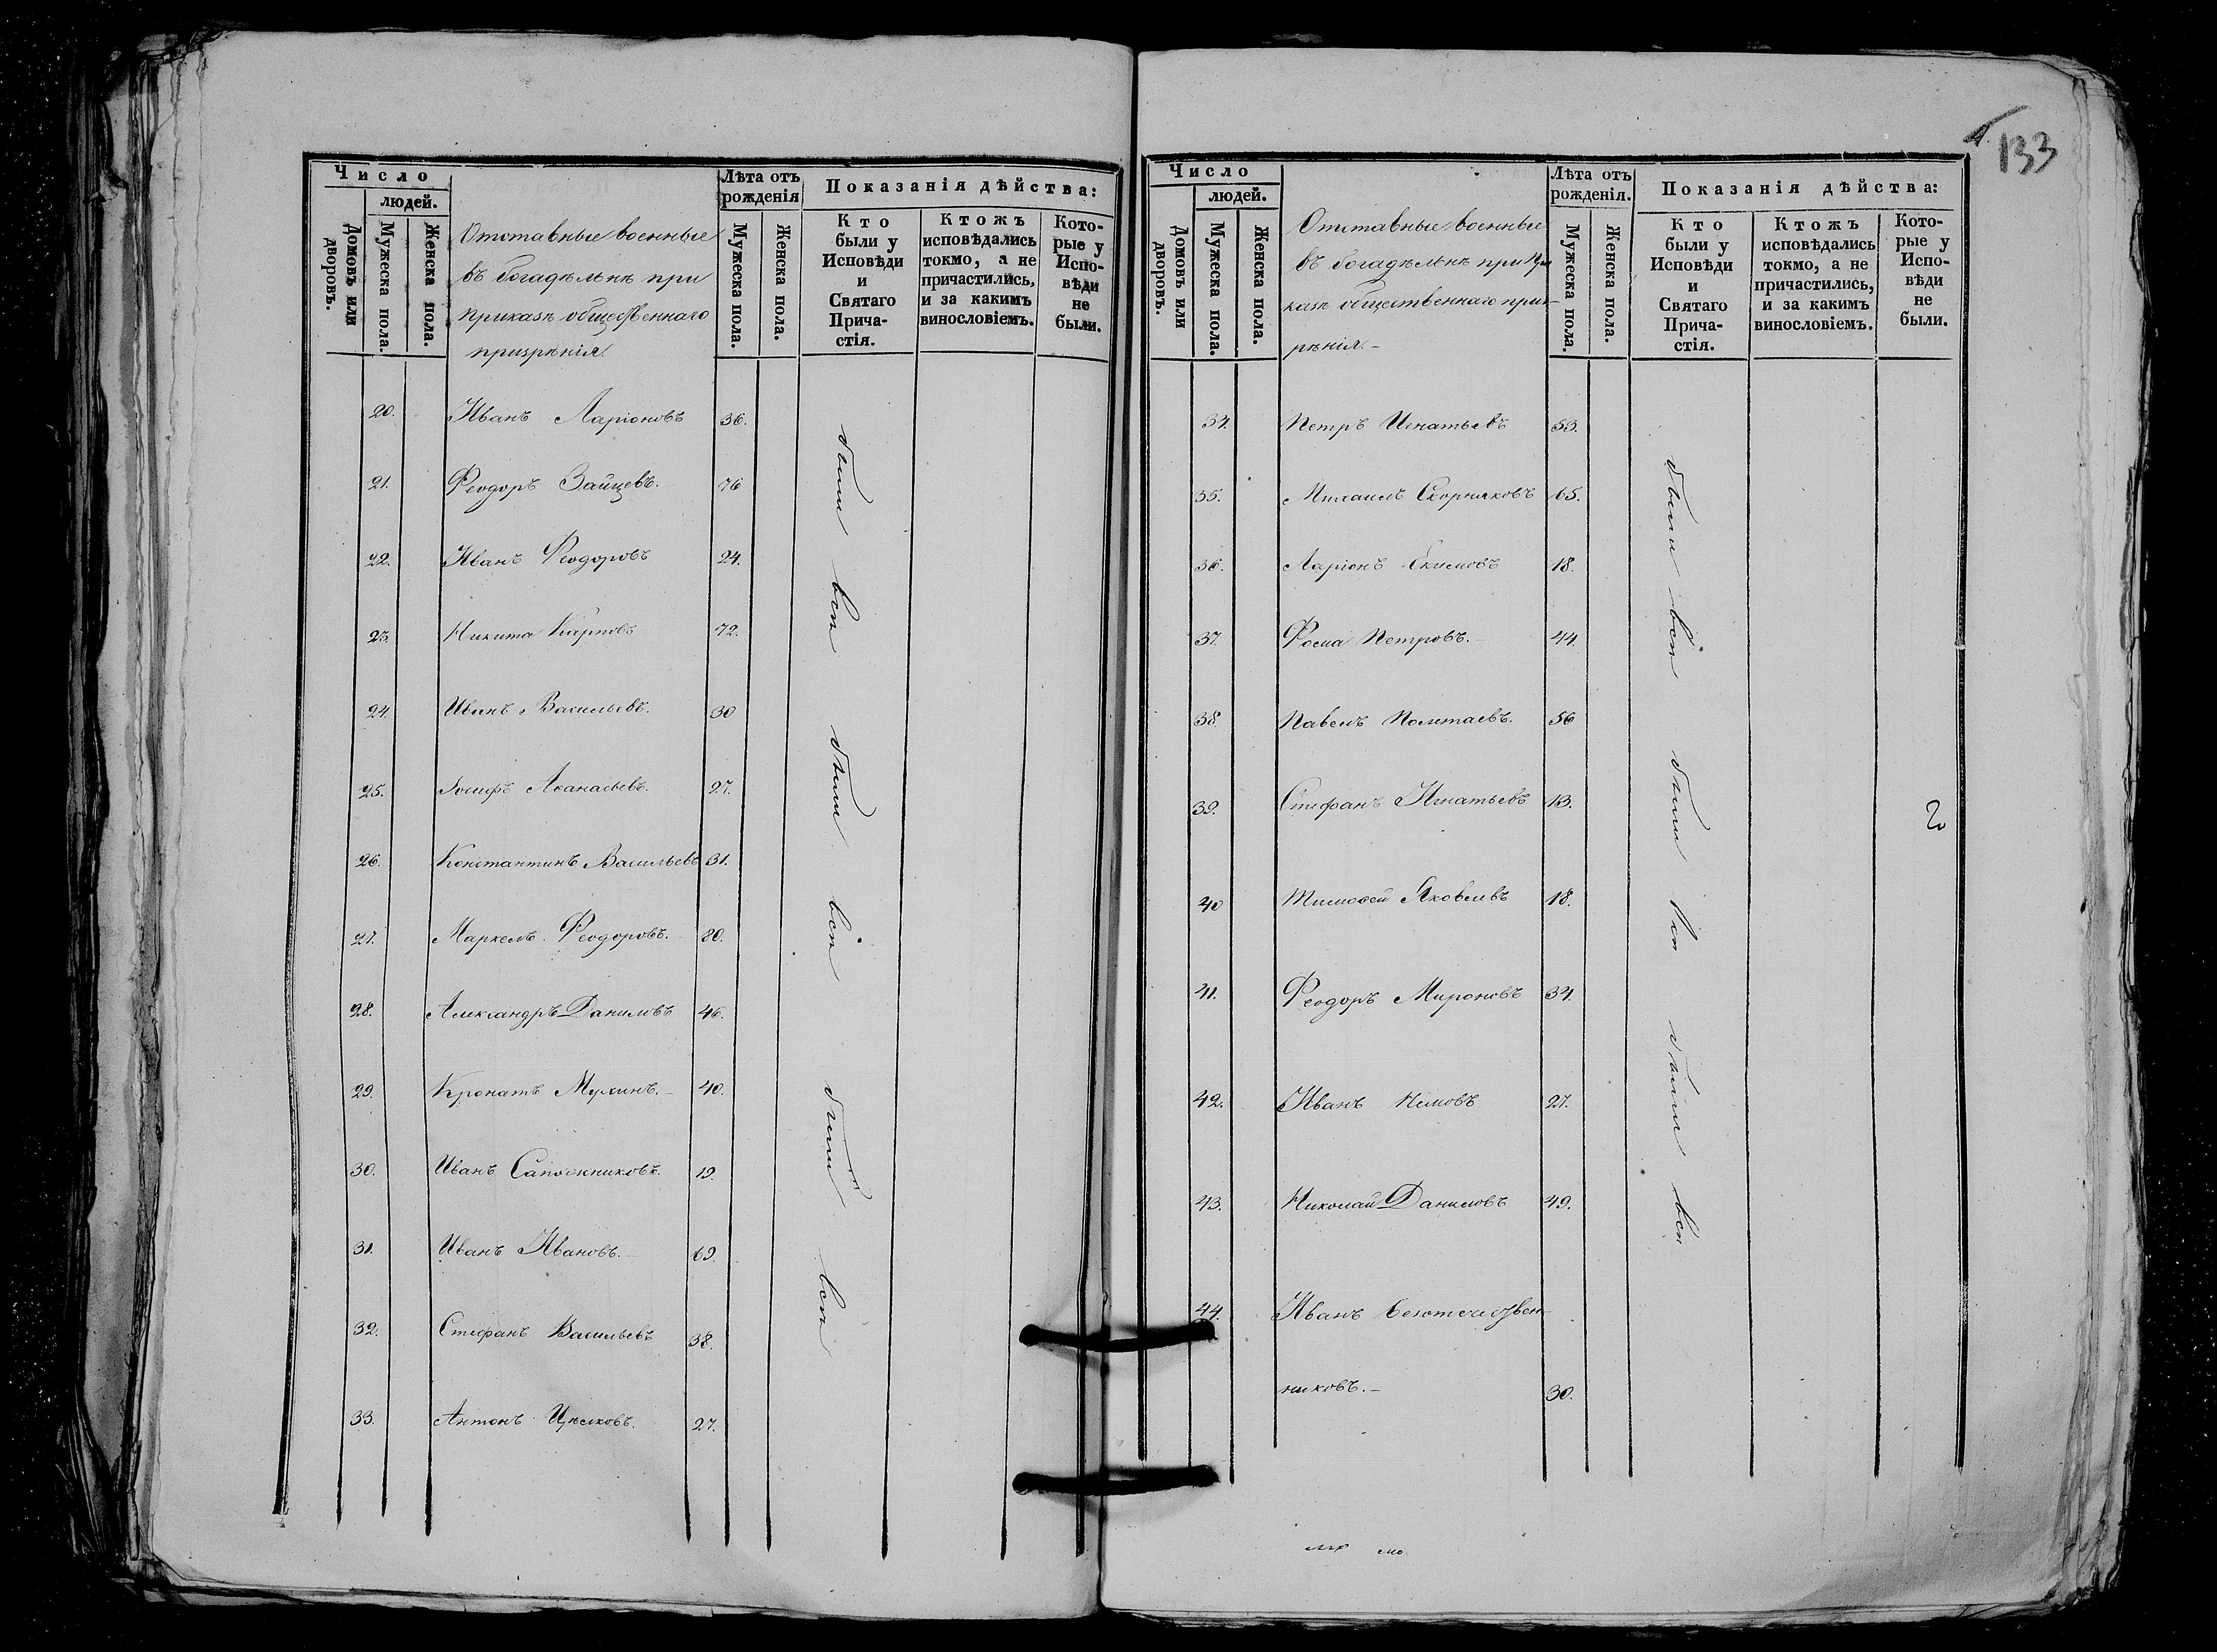 Число
людей.
Домовъ или дворовъ.
Мужеска пола.
Женска пола.
Отставные военные
въ богадѣльнѣ при
приказѣ общественнаго
призрѣнія.
Лѣта отъ рожденія
Мужеска пола.
Женска пола.
Показанія дѣйства:
Кто были у Исповѣди и Святаго Причастія.
Ктожъ исповѣдались токмо, а не причастились, и за какимъ винословіемъ.
Которые у Исповѣди не были.
20. Иванъ Ларіоновъ 36.
21. Феодоръ Зайцевъ. 76
22. Иванъ Феодоровъ 24.
23. Никита Карповъ 72.
24. Иванъ Васильевъ. 30
25. Іосифъ Аѳанасьевъ. 27.
26. Константинъ Васильевъ 31.
27. Маркелъ Феодоровъ. 80.
28. Александръ Даниловъ 46.
29. Кронатъ Мухинъ. 40.
30. Иванъ Сапожниковъ. 19.
31. Иванъ Ивановъ. 69.
32. Стефанъ Васильевъ 38.
33. Антонъ Цѣлковъ. 27.
были всѣ были всѣ были всѣ
133
Число
людей.
Домовъ или дворовъ.
Мужеска пола.
Женска пола.
Отставные военные
въ богадѣльнѣ при При-
казѣ общественнаго приз-
рѣнія.
Лѣта отъ рожденія.
Мужеска пола.
Женска пола.
Показанія дѣйства:
Кто были у Исповѣди и Святаго Причастія.
Ктожъ исповѣдались токмо, а не причастились, и за какимъ винословіемъ.
Которые у Исповѣди не были.
34. Петръ Игнатьевъ 53.
35. Михаилъ Скорняковъ 65.
36. Ларіонъ Екимовъ 18.
37. Фома Петровъ. 44.
38. Павелъ Полтаевъ. 56
39. Стефанъ Игнатьевъ 13.
40 Тимоѳей Яковлевъ 18.
41. Феодоръ Мироновъ 34.
42. Иванъ 27.
43. Николай Даниловъ 49.
44. Иванъ Безотечествен-
никовъ. 30.
были всѣ были всѣ были всѣ